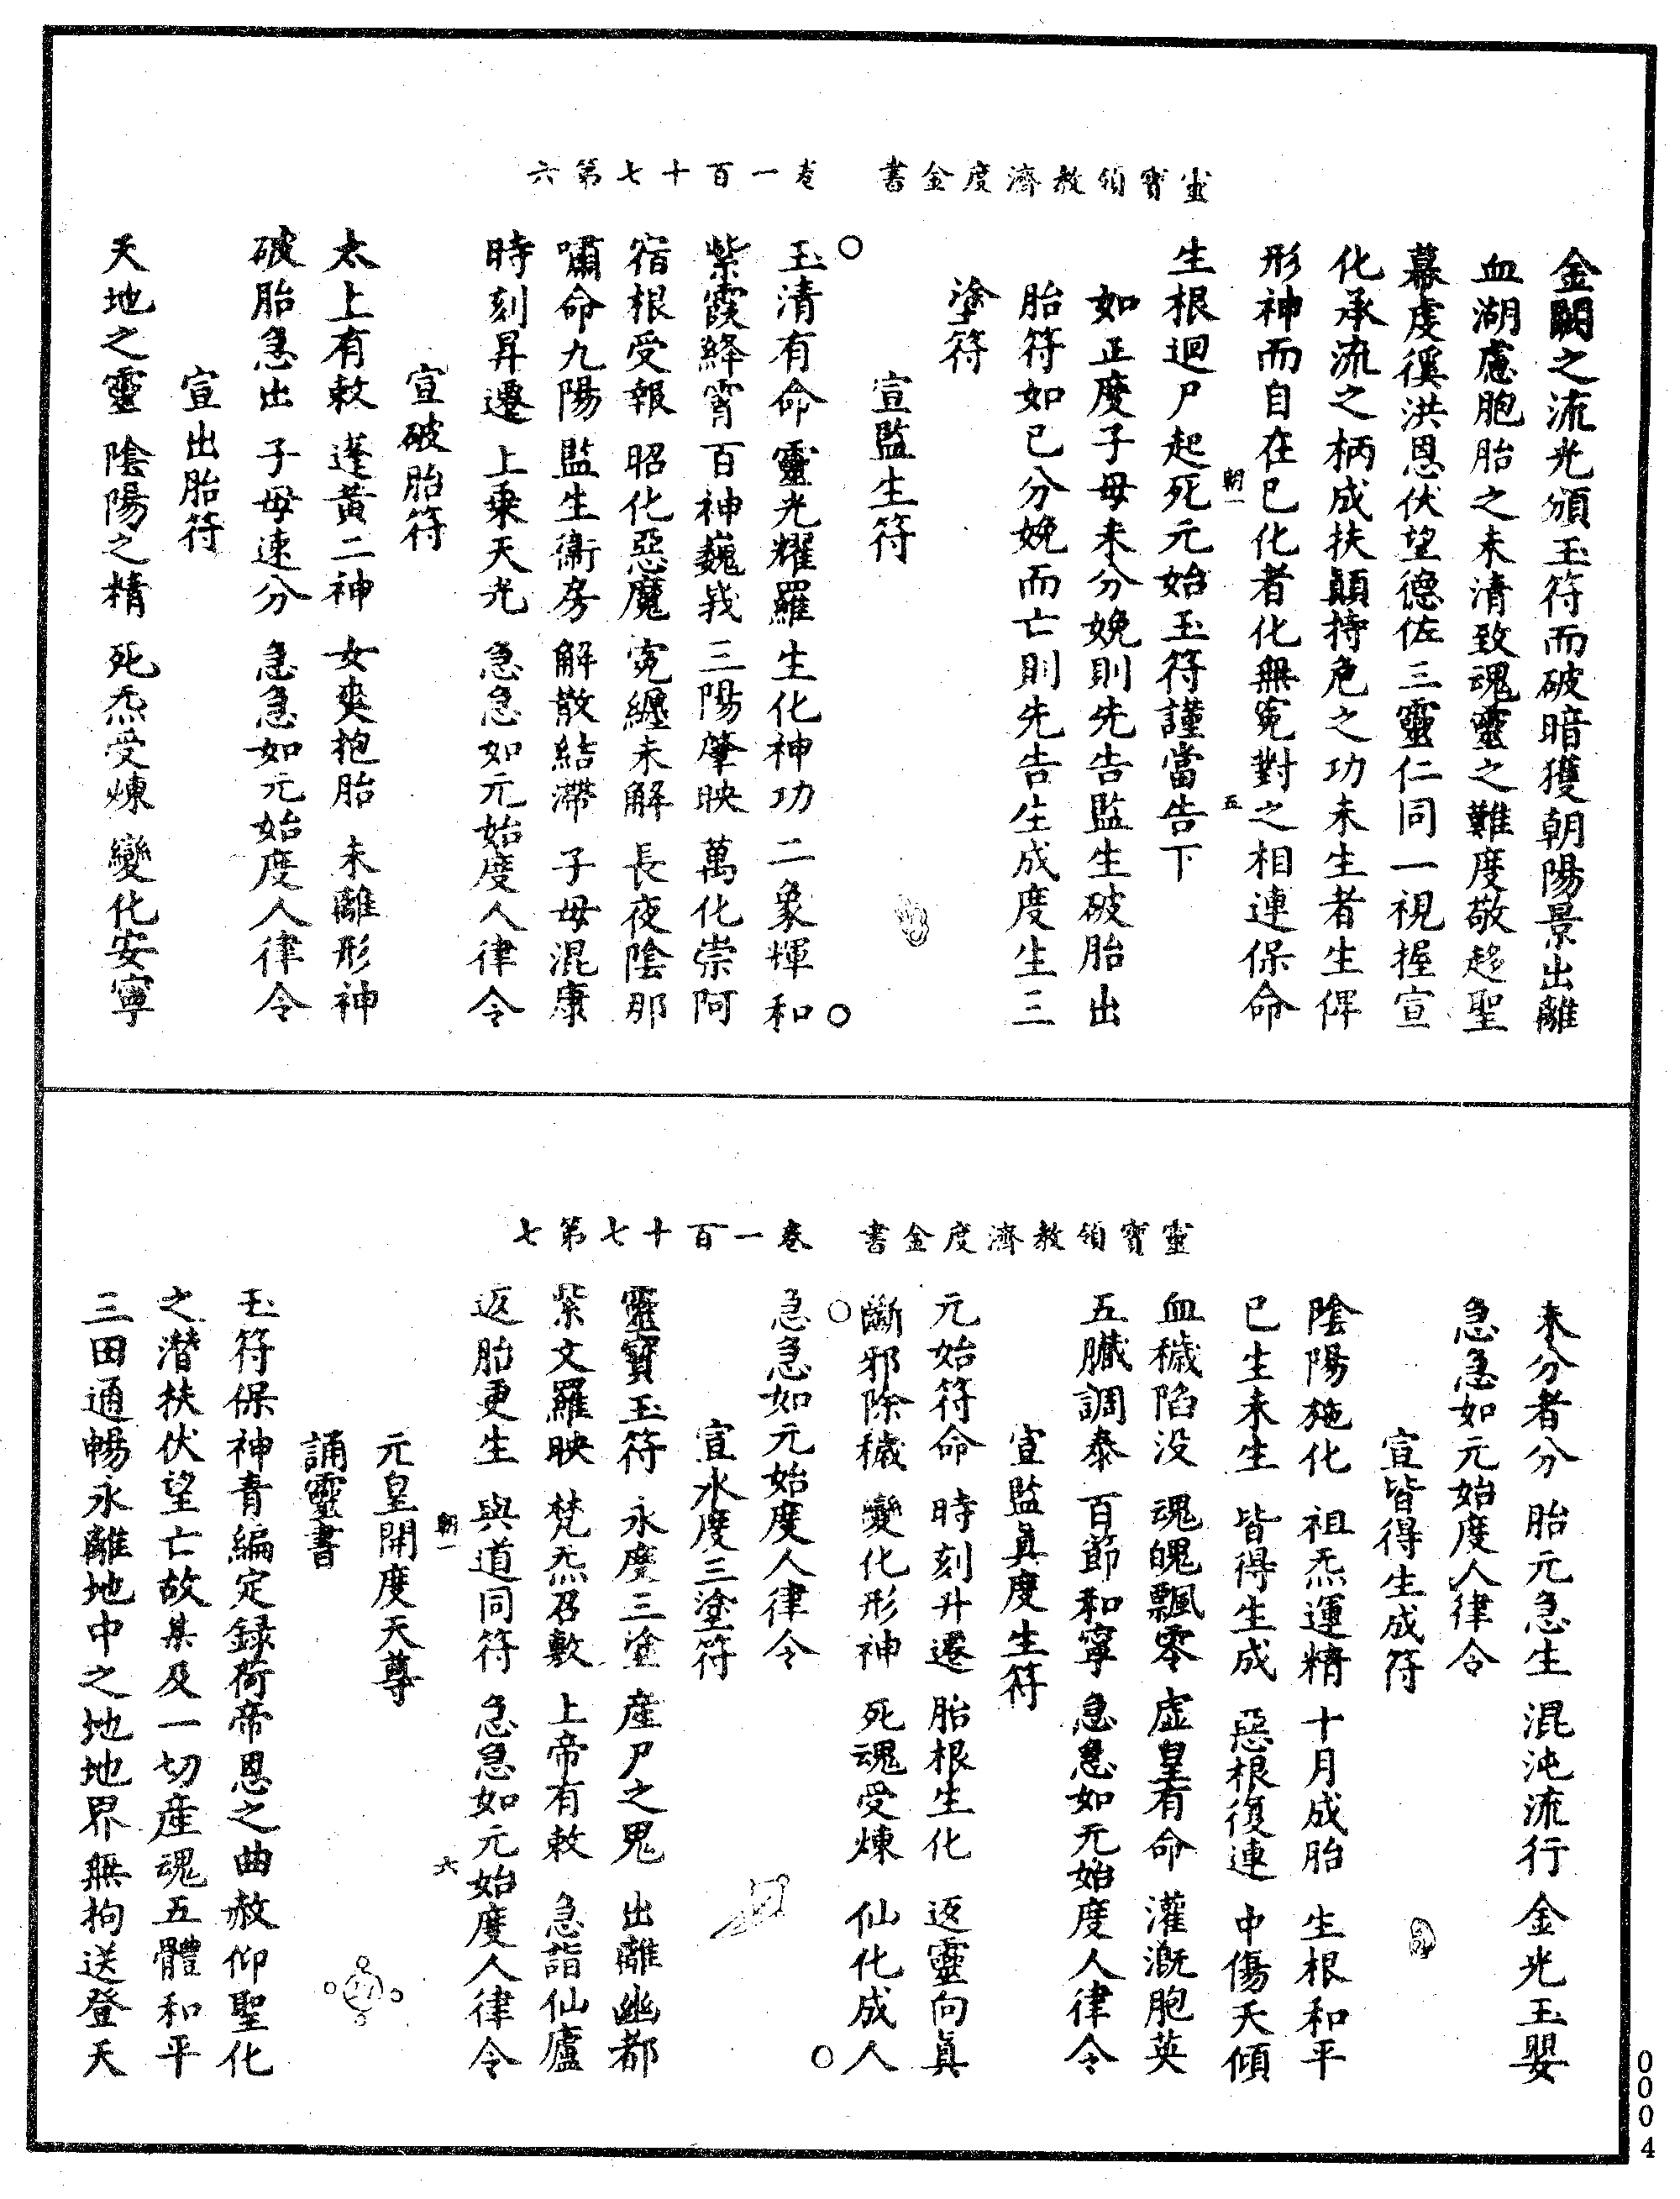 靈寶領教濟度金書　卷一百十七第六
金闕之流光頒玉符而破暗獲朝陽景出離
血湖慮胞胎之未清致魂靈之難度敬趍聖
幕虔徯洪恩伏望德佐三靈仁同一視握宣
化承流之柄成扶顛持危之功未生者生俾
形神而自在已化者化無寃對之相連保命
朝一　五
生根迴尸起死元始玉符謹當告下
如正度子母未分娩則先告監生破胎出
胎符如已分娩而亡則先告生成度生三
塗符
宣監生符
玉清有命　靈光耀羅　生化神功　二象輝和
紫霞絳霄　百神巍峩　三陽肇映　萬化崇阿
宿根受報　昭化惡魔　寃纏未解　長夜陰那
嘯命九陽　監生衛房　解散結滯　子母混康
時刻昇遷　上乗天光　急急如元始度人律令
宣破胎符
太上有敕　逢黃二神　女爽抱胎　未離形神
破胎急出　子母速分　急急如元始度人律令
宣出胎符
天地之靈　陰陽之精　死炁受煉　變化安寧
靈寶領教濟度金書　卷一百十七第七
未分者分　胎元急生　混沌流行　金光玉嬰
急急如元始度人律令
宣皆得生成符
陰陽施化　祖炁運精　十月成胎　生根和平
已生未生　皆得生成　惡根復連　中傷夭傾
血穢陷没　魂魄飄零　虛皇有命　灌溉胞英
五臟調泰　百節和寧　急急如元始度人律令
宣監真度生符
元始符命　時刻升遷　胎根生化　返靈向真
斷邪除穢　變化形神　死魂受煉　仙化成人
急急如元始度人律令
宣永度三塗符
靈寶玉符　永度三塗　産尸之鬼　出離幽都
紫文羅映　梵炁召敷　上帝有敕　急詣仙廬
返胎更生　與道同符　急急如元始度人律令
朝一　六
元皇開度天尊
誦靈書
玉符保神青編定録荷帝恩之曲赦仰聖化
之潛扶伏望亡故某及一切産魂五體和平
三田通暢永離地中之地地界無拘送登天
0004